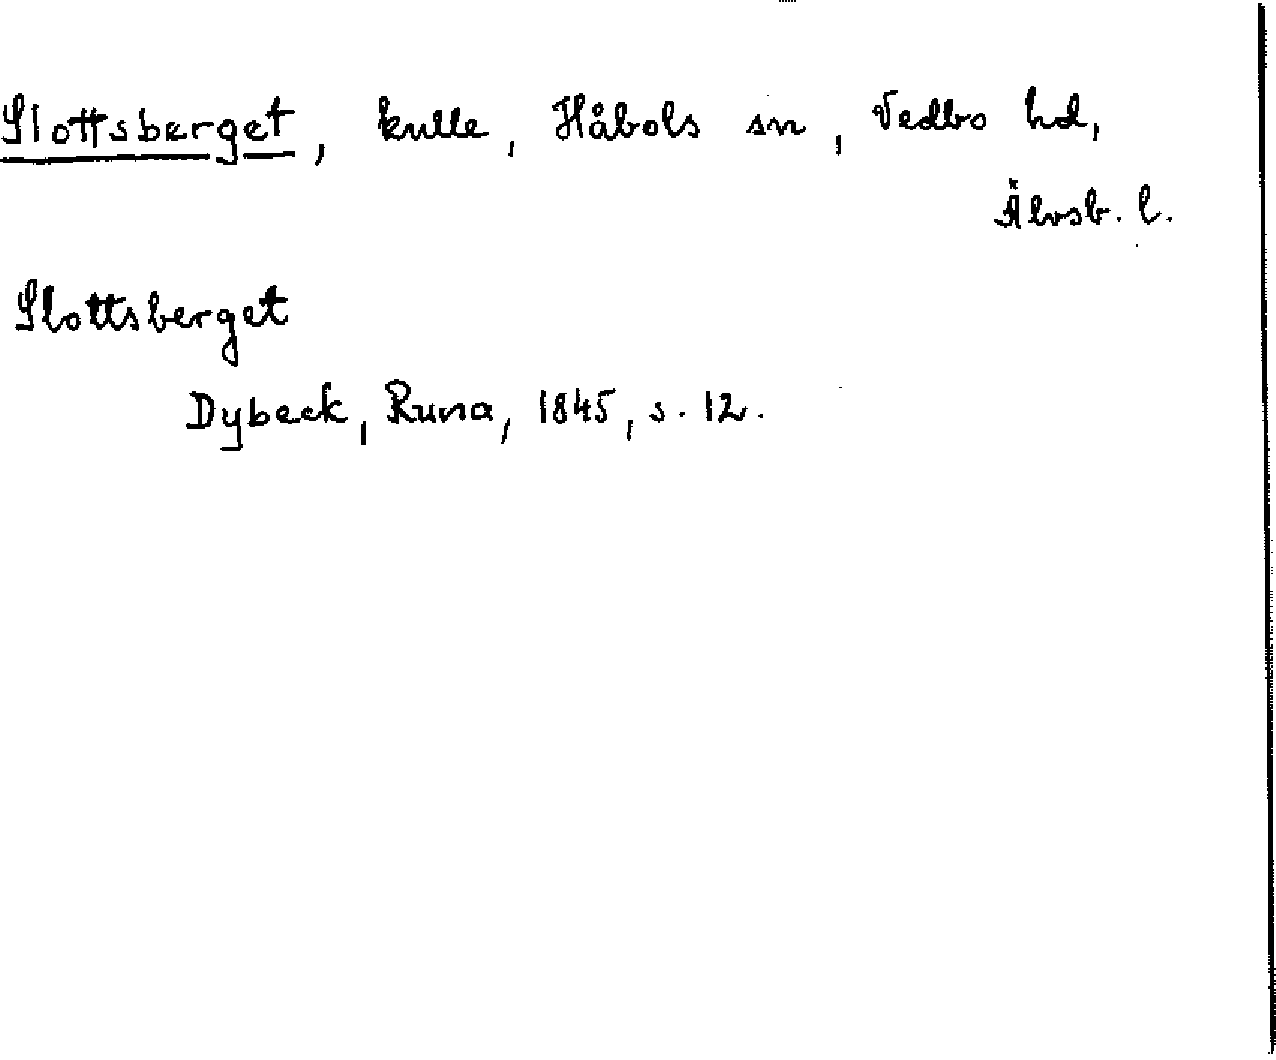 Slottsberget, kulle, Håbols sn, Vedbo hd,
Älvsb. l.
Slottsberget
Dybeck, Runa, 1845, s. 12.